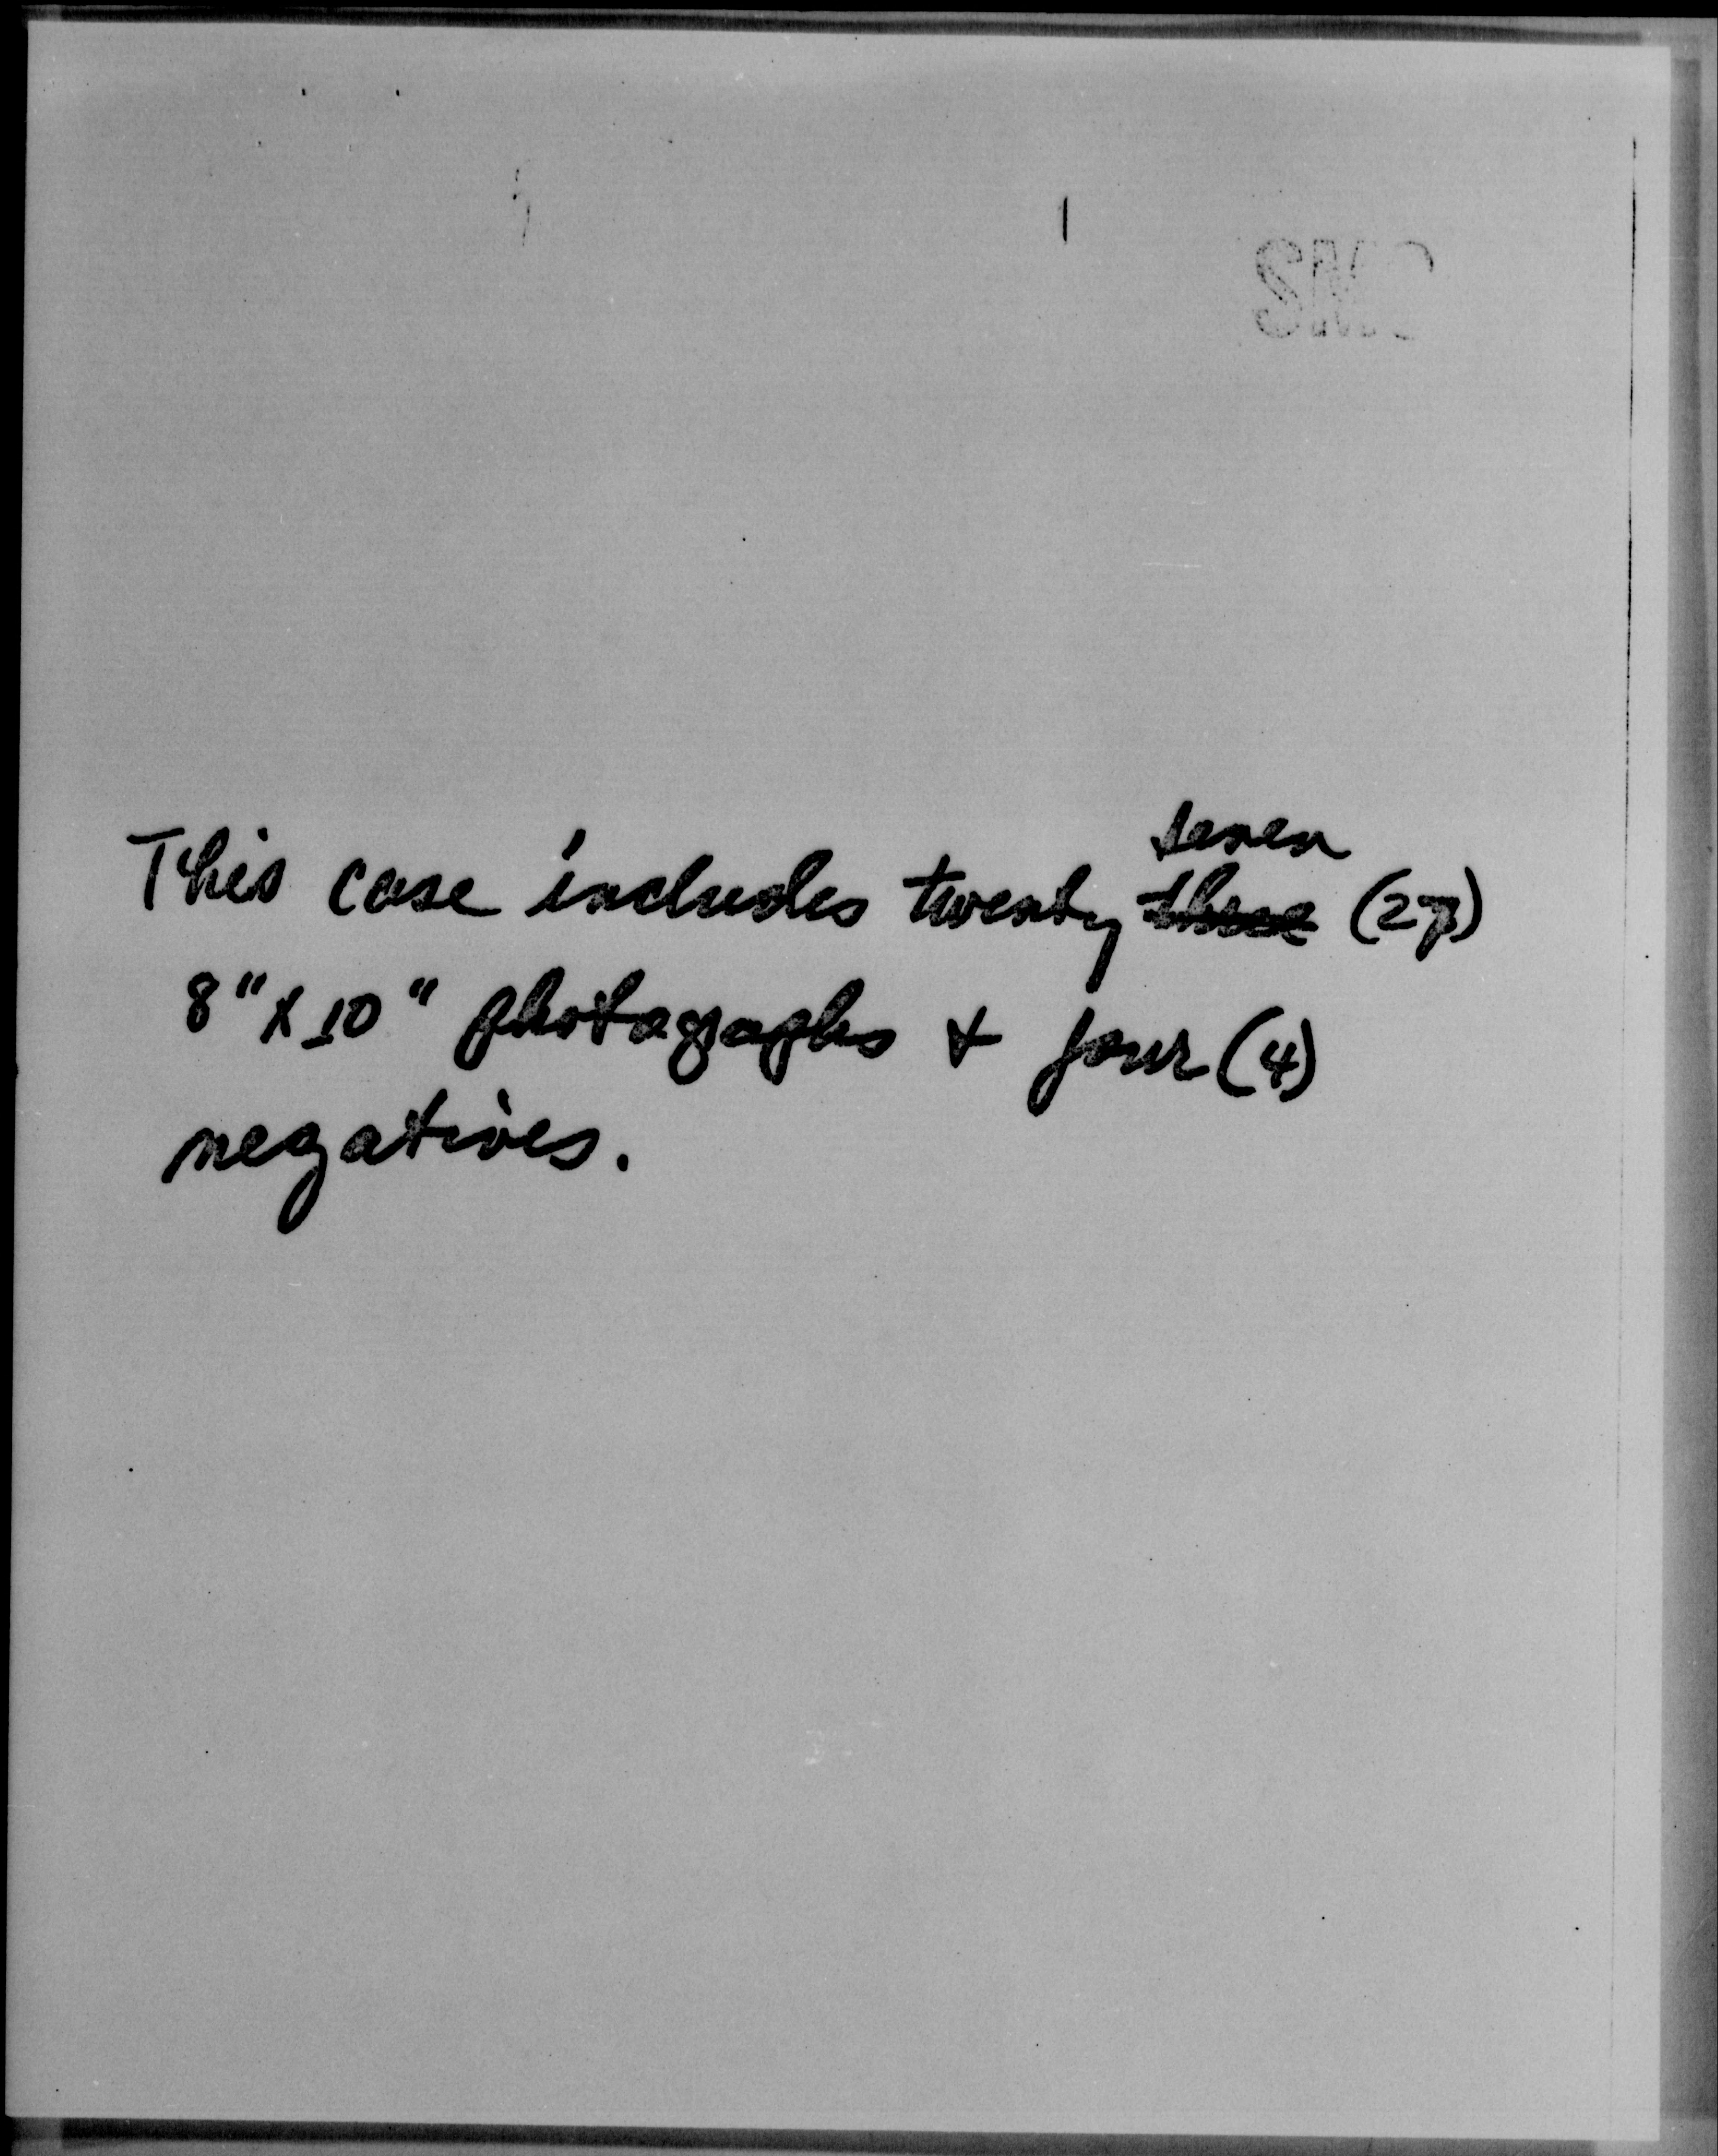 seven
This case includes twenty three (27)
8" x 10" photographs & four (4)
negatives.